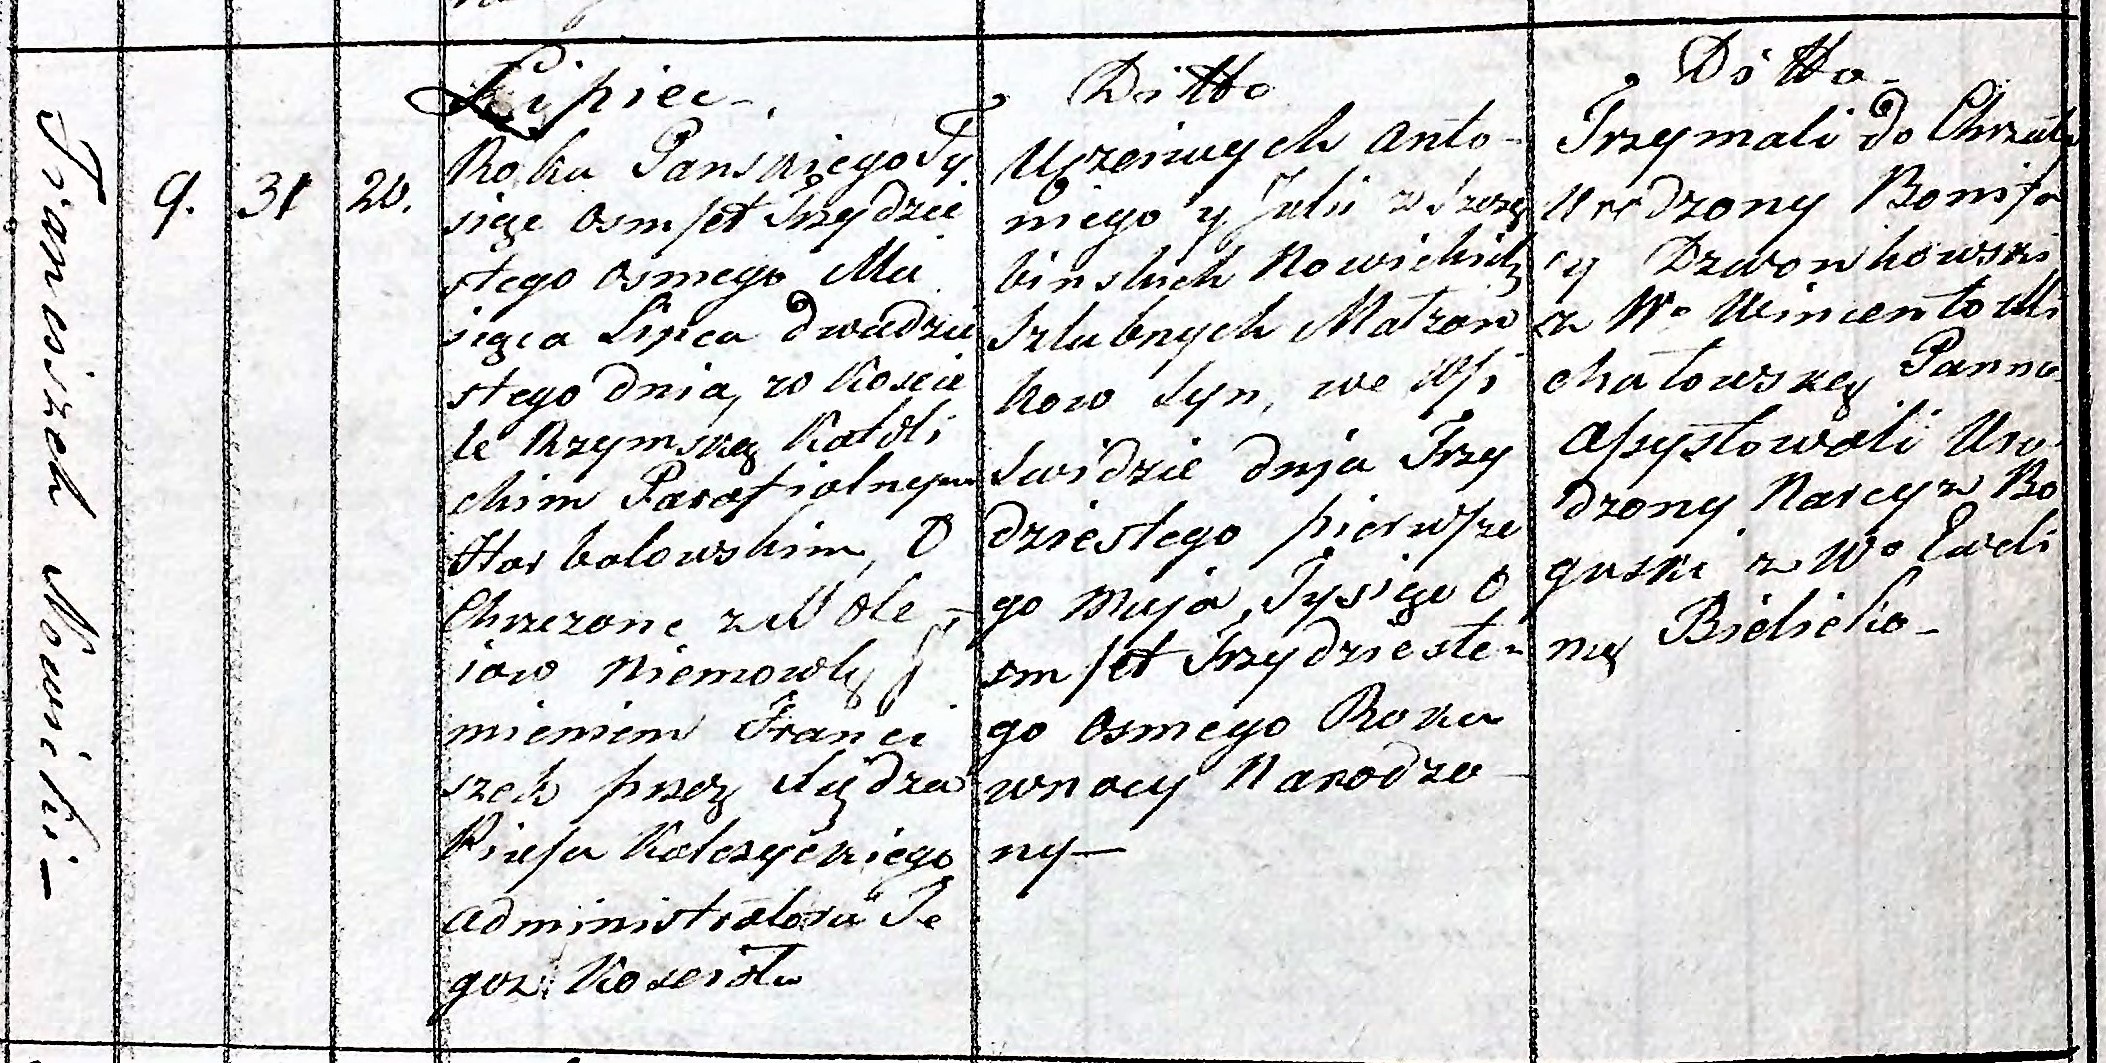 Franciszek Nowicki —
9.
31
20.
Lipiec —
Roku Panskiego Ty
siąc Osmset Trzydzie
stego Osmego Mie
siąca Lipca dwudzie
stego dnia, w Koscie
le Rzymsko Katoli
ckim Parafialnym
Horbatowskim, O
Chrzczone z W Ole
iow niemowlę J
mieniem Franci
szek przez Xiędza
Piusa Kolczyckiego
Administratora Te
goz Koscioła
Ditto
Uczciwych Anto-
niego y Julii z
binskich Nowickich
Szlubnych Małzon
kow Syn, we Wsi
Swidzie dnia Trzy
dziestego pierwsze
go Maja, Tysiąc O
sm set Trzydzieste-
go Osmego Roku
w nocy Narodzo —
ny —
Ditto —
Trzymali do Chrztu
Urodzony Bonifa
cy Dzwonkowski
z W° Wincento Mi
chałowską Panną
Assystowali Uro
dzony Narcyz Bo
guski z W° Eweli
ną Bielicką —